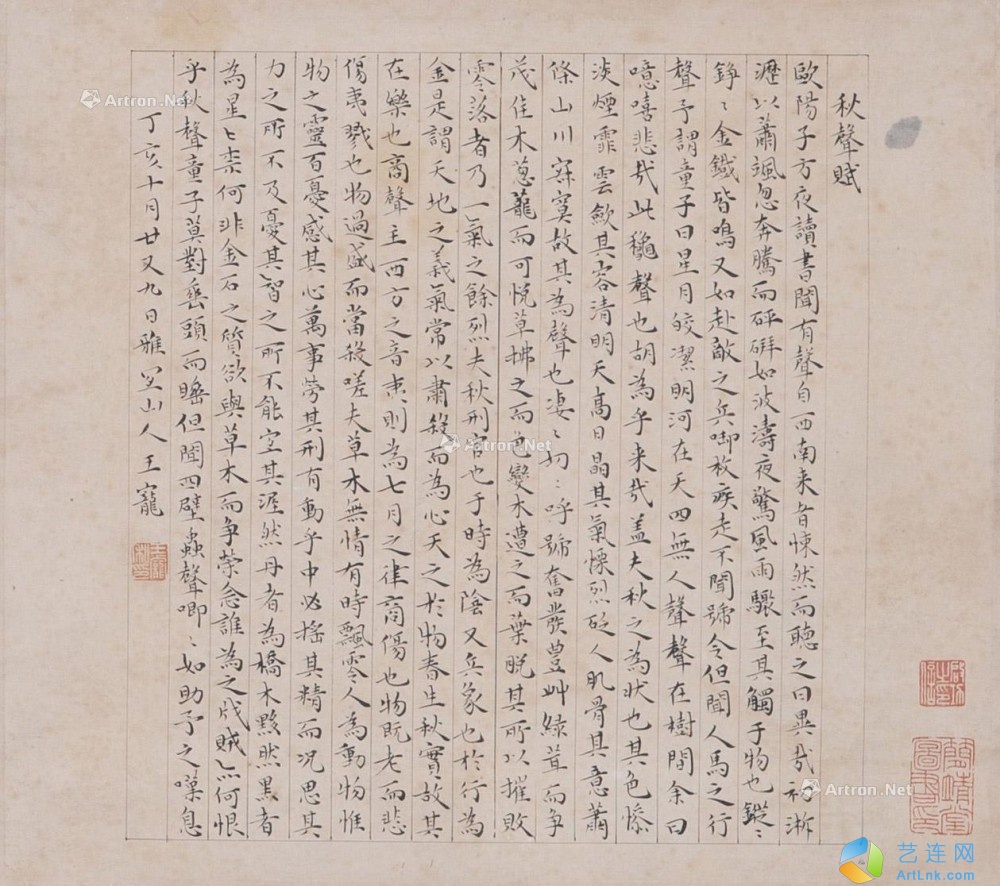 秋聲賦
歐陽子方夜讀書聞有聲自西南来者悚然而聽之曰異哉初淅
瀝以蕭颯忽奔騰而砰硑如波濤夜驚風雨驟至其觸于物也鏦〻
錚〻金鐵皆鳴又如赴敵之兵啣枚疾走不聞號令但聞人馬之行
聲予謂童子曰星月皎潔明河在天四無人聲聲在樹間余曰
噫嘻悲哉此龝聲也胡為乎来哉盖夫秋之為狀也其色慘
淡煙霏雲歛其容清明天高日晶其氣慄烈砭人肌骨其意蕭
條山川寂寞故其為聲也凄〻切〻呼號奮發豊艸緑茸而争
茂佳木葱蘢而可悦草拂之而色變木遭之而葉脱其所以摧敗
零落者乃一氣之餘烈夫秋刑官也于時為陰又兵象也於行為
金是謂天地之義氣常以肅殺而為心天之於物春生秋實故其
在樂也商聲主西方之音夷則為七月之律商傷也物既老而悲
傷夷戮也物過盛而當殺嗟夫草木無情有時飄零人為動物惟
物之靈百憂感其心萬事勞其刑有動乎中必摇其精而况思其
力之所不及憂其智之所不能宜其渥然丹者為槁木黟然黒者
為星〻柰何非金石之質欲與草木而争榮念誰為之戕賊亦何恨
乎秋聲童子莫對垂頭而睡但聞四壁蟲聲唧〻如助予之嘆息
丁亥十月廿又九日雅宜山人王寵
Artron.Net
Artron.Net
Artron.Net
Artron.Net
艺连网
ArtLnk.com